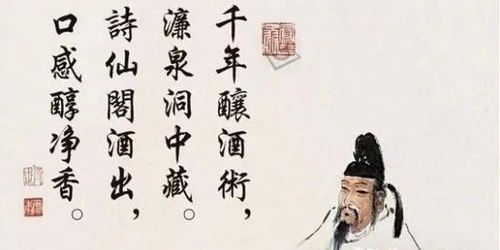 千年釀酒術，
濂泉洞中藏。
詩仙閣酒出，
口感醇净香。